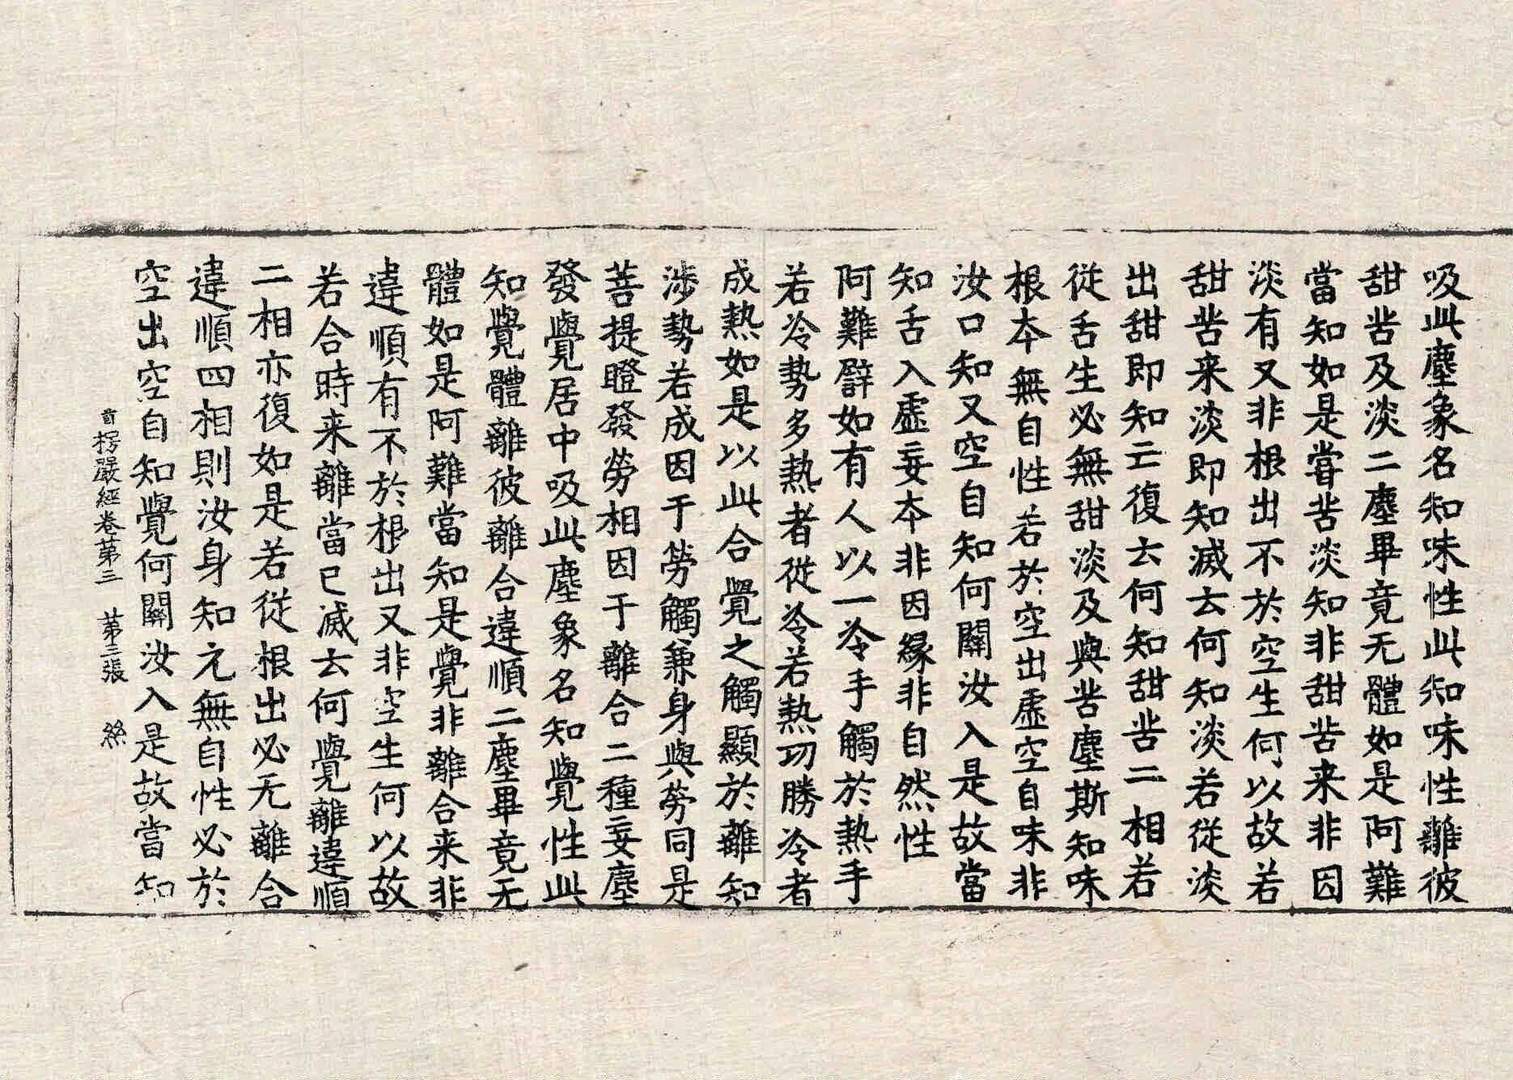 吸此塵象名知味性此知味性離彼
甜苦及淡二塵畢竟无體如是阿難
當知如是嘗苦淡知非甜苦来非因
淡有又非根出不於空生何以故若
甜苦来淡即知滅云何知淡若從淡
出甜即知亡復云何知甜苦二相若
從舌生必無甜淡及與苦塵斯知味
根本無自性若於空出虛空自味非
汝口知又空自知何關汝入是故當
知舌入虛妄本非因緣非自然性
阿難譬如有人以一冷手觸於熱手
若冷勢多熱者從冷若熱功勝冷者
成熱如是以此合覺之觸顯於離知
涉勢若成因于勞觸兼身與勞同是
菩提瞪發勞相因于離合二種妄塵
發覺居中吸此塵象名知覺性此
知覺體離彼離合違順二塵畢竟无
體如是阿難當知是覺非離合来非
違順有不於根出又非空生何以故
若合時来離當已滅云何覺離違順
二相亦復如是若從根出必无離合
違順四相則汝身知元無自性必於
空出空自知覺何關汝入是故當知
首楞嚴經卷第三　第三張　絲